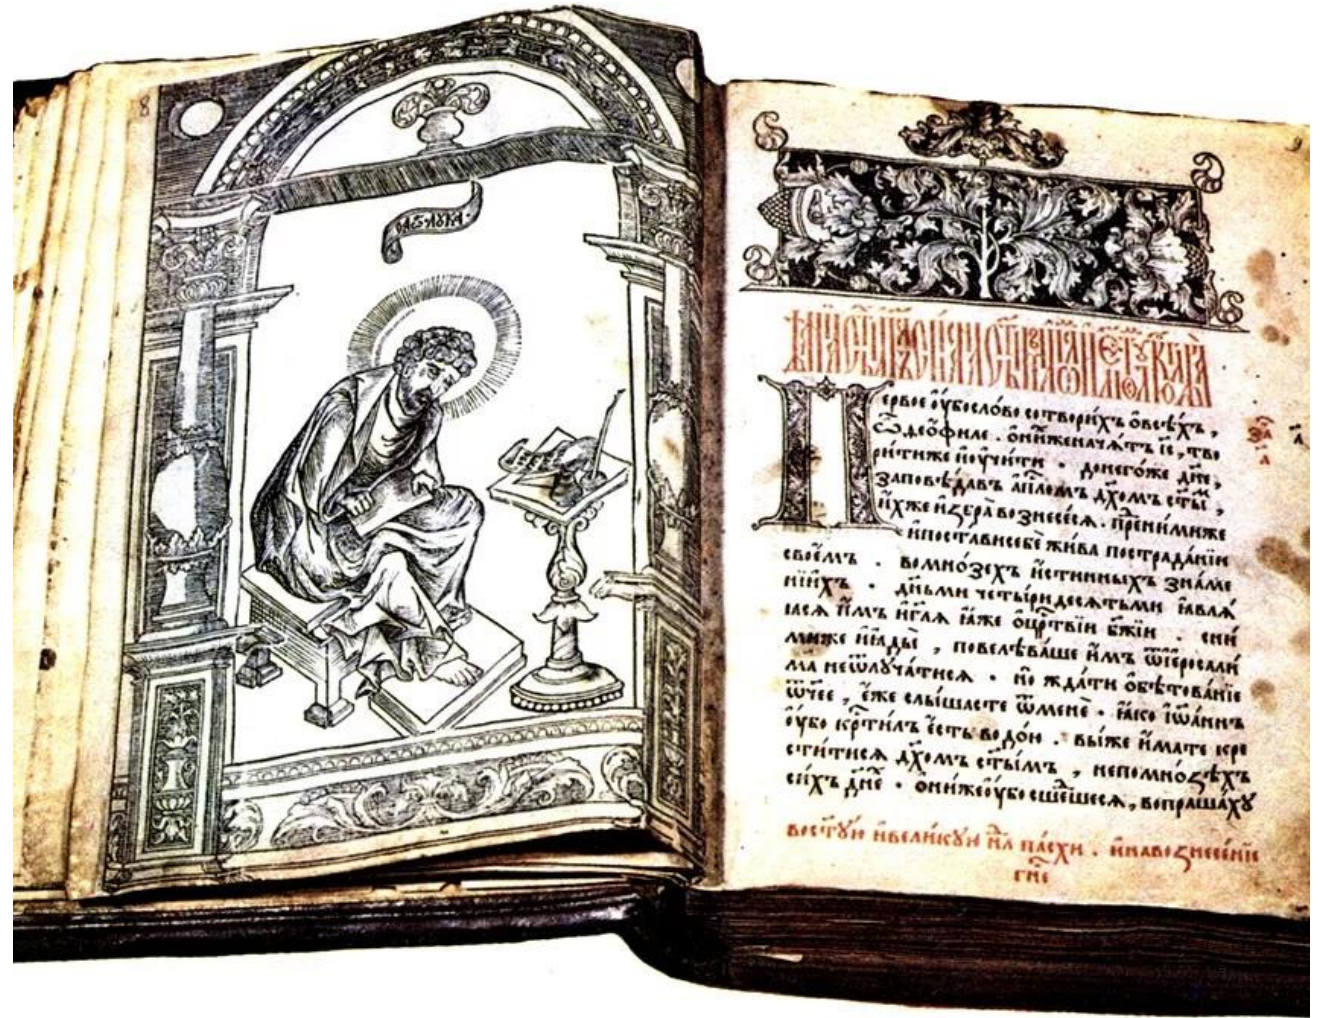 ѻ҆а҆ѿ · лꙋка ·
Пе́рвое ѹ҆́бо сло́во сотвори́хъ ѻ҆ всѣ́хъ ,
ѽ , деѻ҆́филе . ѻ҆ ни́хже нача́тъ і҆с҃ , тво
ри́ти же и҆ ѹ҆чи́ти · донего́же дн҃е ,
заповѣ́давъ а҆пⷭ҇ломъ дх҃омъ ст҃ы́м ,
и҆́хже и҆збра̀ вознесе́сѧ . пред ни́миже
и҆ поста́ви себѐ жи́ва по страда́нїи
свое́мъ · во мно́зехъ и҆́стинныхъ зна́ме
нїи́хъ · дн҃ьми четы́ридесѧтьми ꙗ҆влѧ́
ꙗсѧ и҆́мъ и҆ гл҃ѧ ꙗ҆́же ѻ҆ црⷭ҇твїи бж҃їи . сни́
миже и҆ ꙗ҆ды̀ , повелѣ́ваше и҆́мъ ѿ і҆ерⷭ҇сали́
ма не ѿлꙋча́тисѧ · но̀ жда́ти ѻ҆бѣтова́нїе
ѻ҆́ч҃ее , є҆́же слы́шасте ѿ менѐ . ꙗ҆́ко і҆ѡ҆а́ннъ
ѹ҆́бо крⷭ҇ти́лъ є҆́сть водо́ю . вы́же и҆́мате кре
сти́тисѧ дх҃омъ ст҃ы́імъ , не по мно́ѕѣхъ
си́хъ дн҃е · ѻ҆ни́же ѹ҆́бо сше́дшесѧ , вопраша́хꙋ
во ст҃ꙋ́ю и҆ вели́кꙋю нл҃ пасхи . и҆ на вознесе́нїе
гн҃е